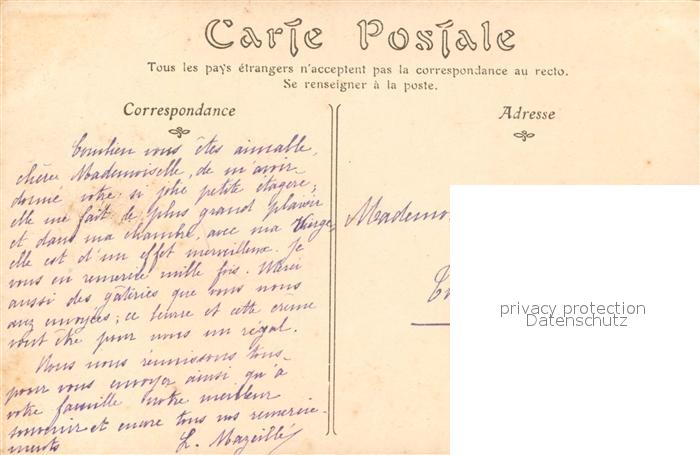 Carte Postale
Tous les pays étrangers n'acceptent pas la correspondance au recto.
Se renseigner à la poste.
Correspondance
Adresse
Combien vous êtes aimable,
chère Mademoiselle, de m'avoir
donné votre si jolie petite étagère;
elle me fait le plus grand plaisir
et dans ma chambre, avec ma Vierge,
elle est d'un effet merveilleux. Je
vous en remercie mille fois. Merci
aussi des gâteries que vous nous
avez envoyées; ce beurre et cette crème
vont être pour nous un régal.
Nous nous réunissons tous
pour vous envoyer ainsi qu'à
votre famille notre meilleur
souvenir et encore tous nos remercie-
ments
L. Mazeillé
Mademoi
privacy protection
Datenschutz